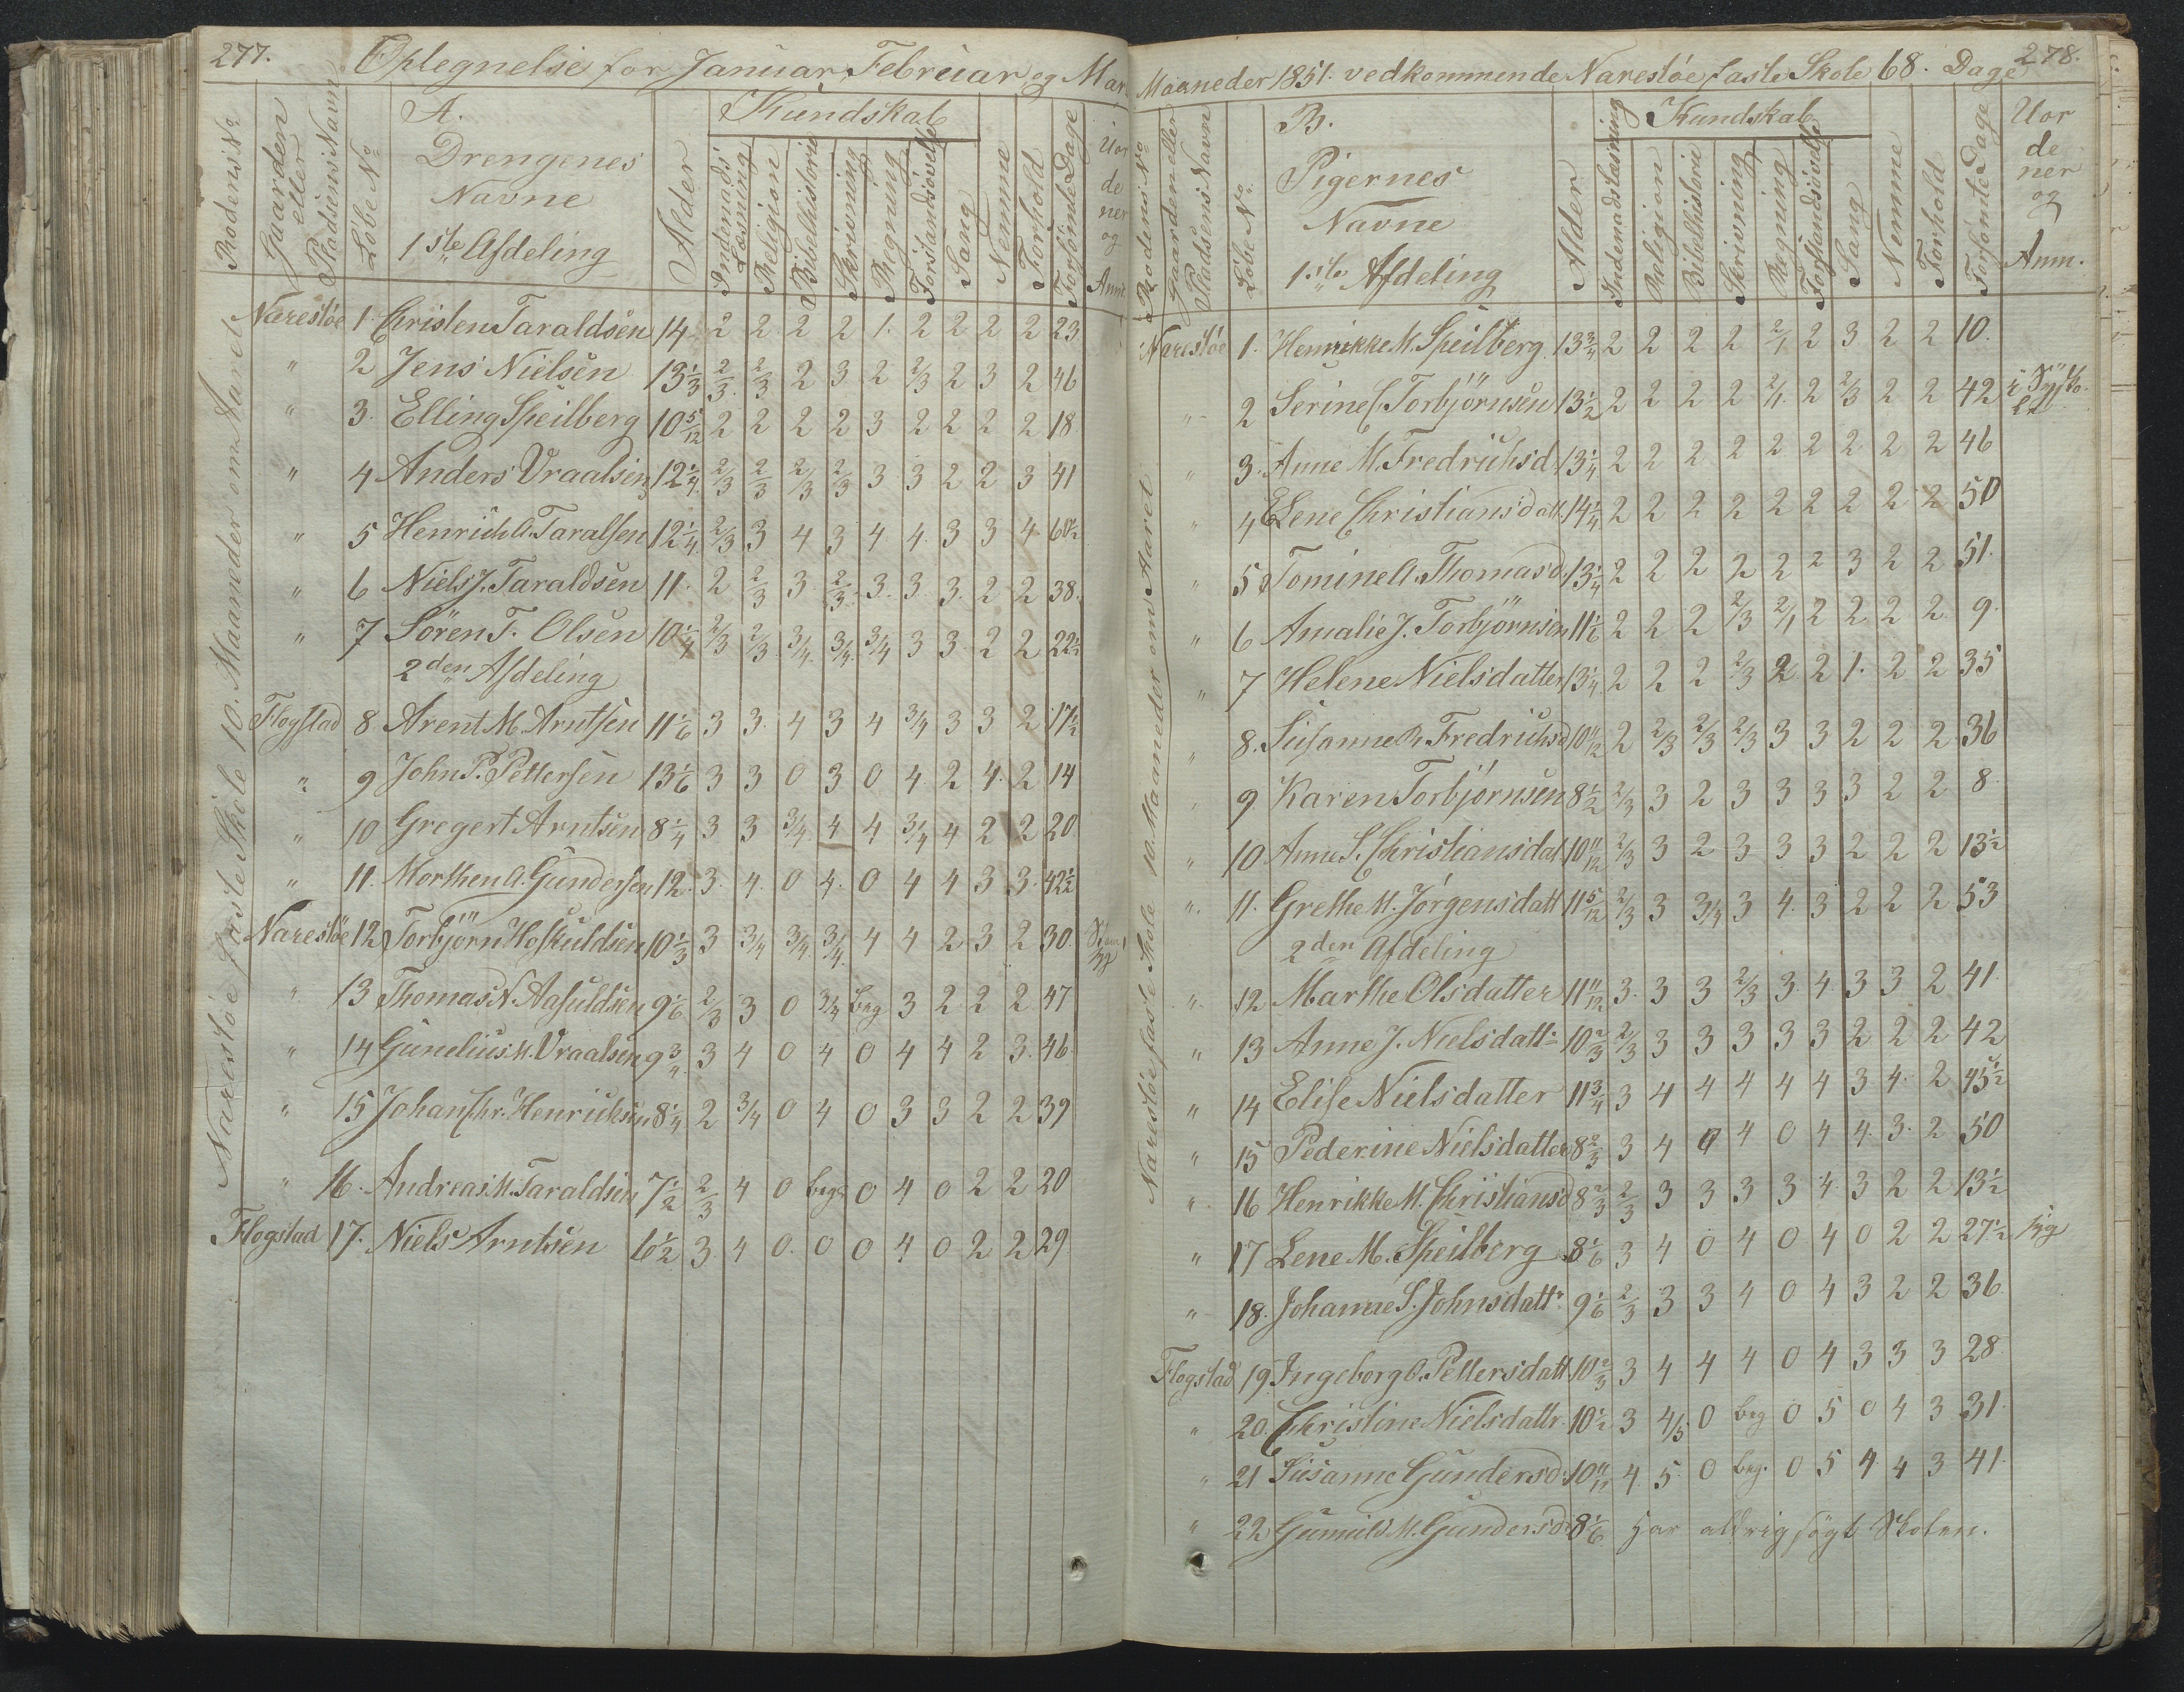 277.
Optegnelse for Januar, Februar og Mar
Rodens No
Gaarden eller Pladsens Navn
Løbe No
A.
Drengenes
Navne
1ste Afdeling
Alder
Kundskab
Indenads Læsning
Religion
Bibelhistorie
Skrivning
Regning
Forstandsøvelse
Sang
Nemme
Forhold
Forsømte Dage
Uor
de
ner
og
Anm
Narestøe faste Skole 10. Maaneder om Aaret
Narestöe 1. Christen Taraldsen 14 2 2 2 2 1. 2 2 2 2 23
" 2 Jens Nielsen 13 1/3 2/3 2/3 2 3 2 2/3 2 3 2 46
" 3. Elling Speilberg 10 5/12 2 2 2 2 3 2 2 2 2 18
" 4 Anders Vraalsen 12 1/4 2/3 2/3 2/3 2/3 3 3 2 2 3 41
" 5 Henrich A. Taralsen 12 1/4 2/3 3 4 3 4 4. 3 3 4 60 1/2
" 6 Niels J. Taraldsen 11. 2 2/3 3 2/3 3. 3. 3. 2 2 38.
" 7 Sören T. Olsen 10 1/4 2/3 2/3 3/4 3/4 3/4 3 3. 2 2 22 1/2
2den Afdeling
Flogstad 8 Arent M. Arntsen 11 1/6 3 3. 4 3 4 3/4 3 3 2 17 1/2
" 9 John P. Pettersen 13 1/6 3 3 0 3 0 4 2 4. 2 14
" 10 Gregert Arntsen 8 1/4 3 3 3/4 4 4 3/4 4 2 2 20
" 11. Morthen A. Gundersen 12. 3. 4. 0 4. 0 4 4 3 3. 42 1/2
Narestöe 12 Torbjörn Hoskuldsen 10 1/3 3 3/4 3/4 3/4 4 4 2 3 2 30.
" 13 Thomas N. Aasuldsen 9 1/6 2/3 3 0 3/4 beg 3 2 2 2 47
" 14 Gunelius M. Vraalsen 9 3/4 3 4 0 4 0 4 4 2 3. 46
" 15 Johan Chr. Henrichsen 8 1/4 2 3/4 0 4 0 3 3 2 2 39
" 16. Andreas M. Taraldsen 7 1/2 2/3 4 0 beg. 0 4 0 2 2 20
Flogstad 17. Niels Arntsen 6 1/2 3. 4 0. 0 0 4 0 2 2 29
278.
Maaneder 1851. vedkommende Narestöe faste Skole 68. Dage
Rodens No
Gaarden eller Pladsens Navn
Løbe No
B.
Pigernes
Navne
1ste Afdeling
Alder
Kundskab
Indenadslæsning
Religion
Bibelhistorie
Skrivning
Regning
Forstandsøvelse
Sang
Nemme
Forhold
Forsømte Dage
Uor
de
ner
og
Anm.
Narestøe faste Skole 10. Maaneder om Aaret
Narestöe 1. Henrikke M. Speilberg 13 3/4 2 2 2 2 2/1 2 3 2 2 10.
" 2 Serine C. Torbjörnsen 13 1/2 2 2 2 2 2/1 2 2/3 2 2 42
" 3. Anne M. Fredrichsd. 13 1/4 2 2 2 2 2 2 2 2 2 46
" 4 Lene Christiansdatt. 14 1/4 2 2 2 2 2 2 2 2 2 50
" 5 Tomine A. Thomasd. 13 1/4 2 2 2 2 2 2 3 2 2 51.
" 6 Amalie J. Torbjörnsen 11 1/6 2 2 2 2/3 2/1 2 2 2 2 9.
" 7 Helene Nielsdatter 13 1/4 2 2 2 2/3 2 2 1. 2 2 35
" 8. Susanne B. Fredrichsd 10 11/12 2 2/3 2/3 2/3 3 3 2 2 2 36
" 9 Karen Torbjörnsen 8 1/2 2/3 3 2 3 3 3 3 2 2 8
" 10 Anne S. Christiansdat 10 11/12 2/3 3 2 3 3 3 2 2 2 13 1/2
" 11. Grethe M. Jörgensdatt 11 5/12 2/3 3 3/4 3 4. 3 2 2 2 53
2den Afdeling
" 12 Marthe Olsdatter 11 11/12 3. 3 3 2/3 3. 4 3 3 2 41.
" 13 Anne J. Nielsdattr 10 2/3 2/3 3 3 3 3 3 2 2 2 42
" 14 Elise Nielsdatter 11 3/4 3 4 4 4 4 4 3 4. 2 45 1/2
" 15 Pederine Nielsdatter 8 2/3 3 4 0 4 0 4 4. 3. 2 50
" 16 Henrikke M. Christiansd 8 2/3 2/3 3 3 3 3 4. 3 2 2 13 1/2
" 17 Lene M. Speilberg 8 1/6 3 4 0 4 0 4 0 2 2 27 1/2 syg
" 18. Johanne S. Johnsdattr. 9 1/6 2/3 3 3 4 0 4 3 2 2 36.
Flogstad 19 Ingeborg O. Pettersdatt. 10 2/3 3 4 4 4 0 4 3 3 3 28
" 20. Christine Nielsdattr. 10 1/2 3 4/5 0 beg 0 5 0 4 3 31.
" 21 Susanne Gundersd. 10 11/12 4 5. 0 beg. 0 5 4 4 3 41.
" 22 Gunild M. Gundersd. 8 1/6 har aldrig søgt Skolen.